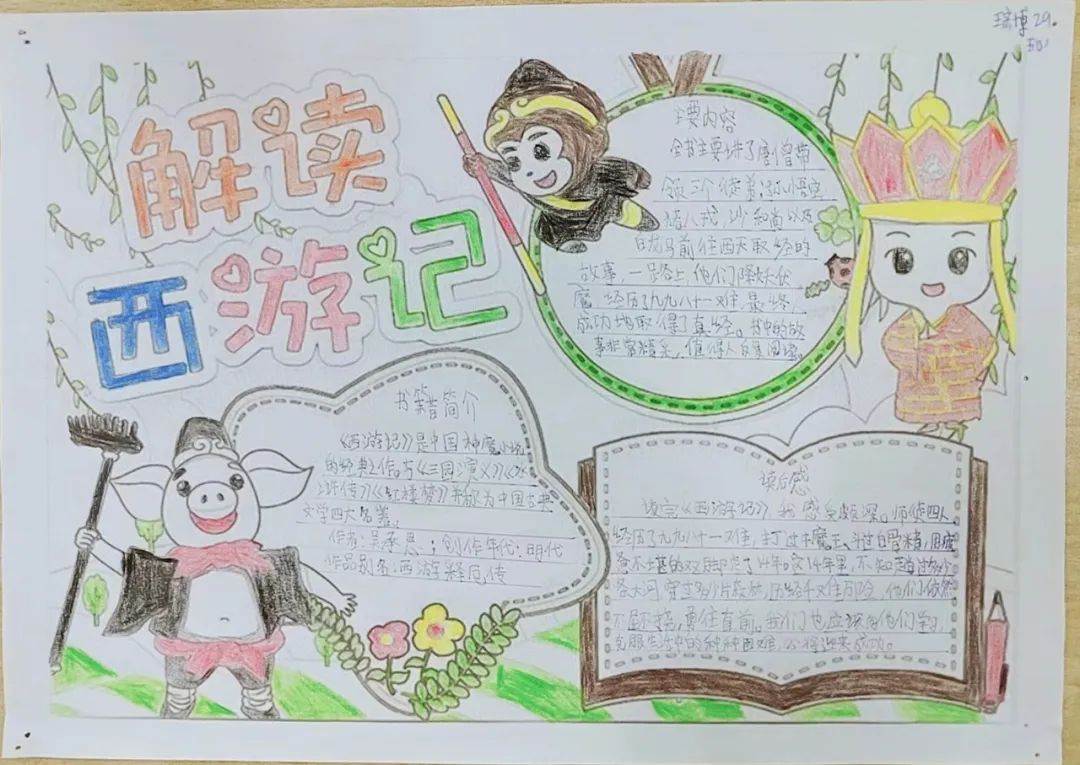 瑞博29.
解读
西游记
主要内容
全书主要讲了唐僧带
领三个徒弟:孙悟空,
猪八戒,沙和尚以及
白龙马前往西天取经的
故事,一路上,他们降妖伏
魔,经历了九九八十一难,最终
成功地取得了真经。书中的故
事非常精采,值得人反复阅读。
书籍简介
《西游记》是中国神魔小说
的经典之作。与《三国演义》《水
浒传》《红楼梦》并称为中国古典
文学四大名著。
作者:吴承恩;创作年代:明代
作品别名:西游释厄传
读后感
读完《西游记》我感受颇深。师徒四人,
经历了九九八十一难,打过牛魔王,斗过白骨精,用
不堪的双脚走了14年。这14年里,不知走过多少
条大河,穿过多少片森林,历经千难万险,他们依然
不屈不挠,勇往直前。我们也应该向他们学习,
克服生活中的种种困难,必将迎来成功。